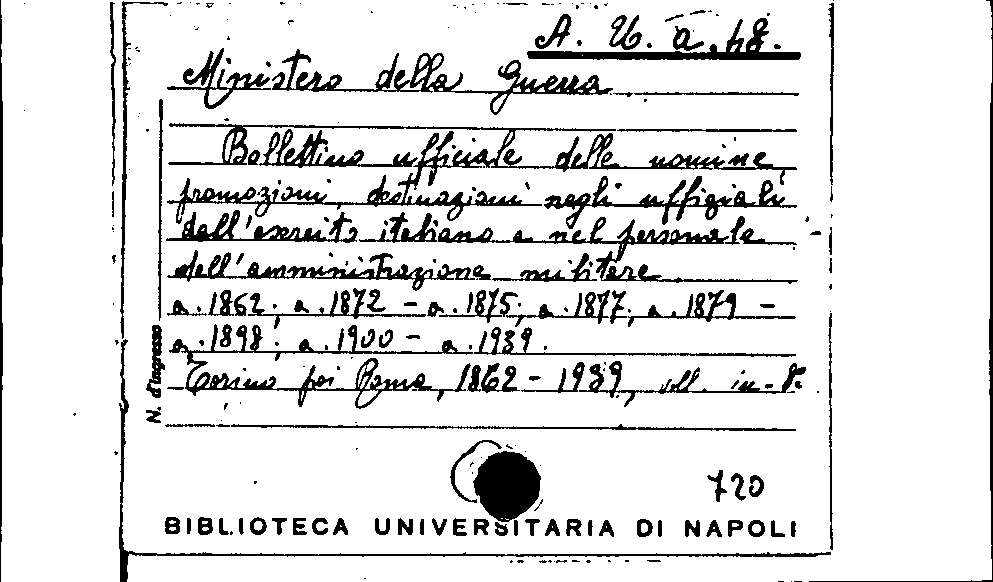 A. U. a. 48.
Ministero della Guerra
Bollettino ufficiale delle nomine,
promozioni, destinazioni negli uffiziali
dell'esercito italiano e nel personale
dell'amministrazione militare
a. 1862; a. 1872 - a. 1875; a. 1877; a. 1879 -
a. 1898; a. 1900 - a. 1939.
Torino poi Roma, 1862 - 1939, voll. in-8°
N. d'ingresso
720
BIBLIOTECA UNIVERSITARIA DI NAPOLI